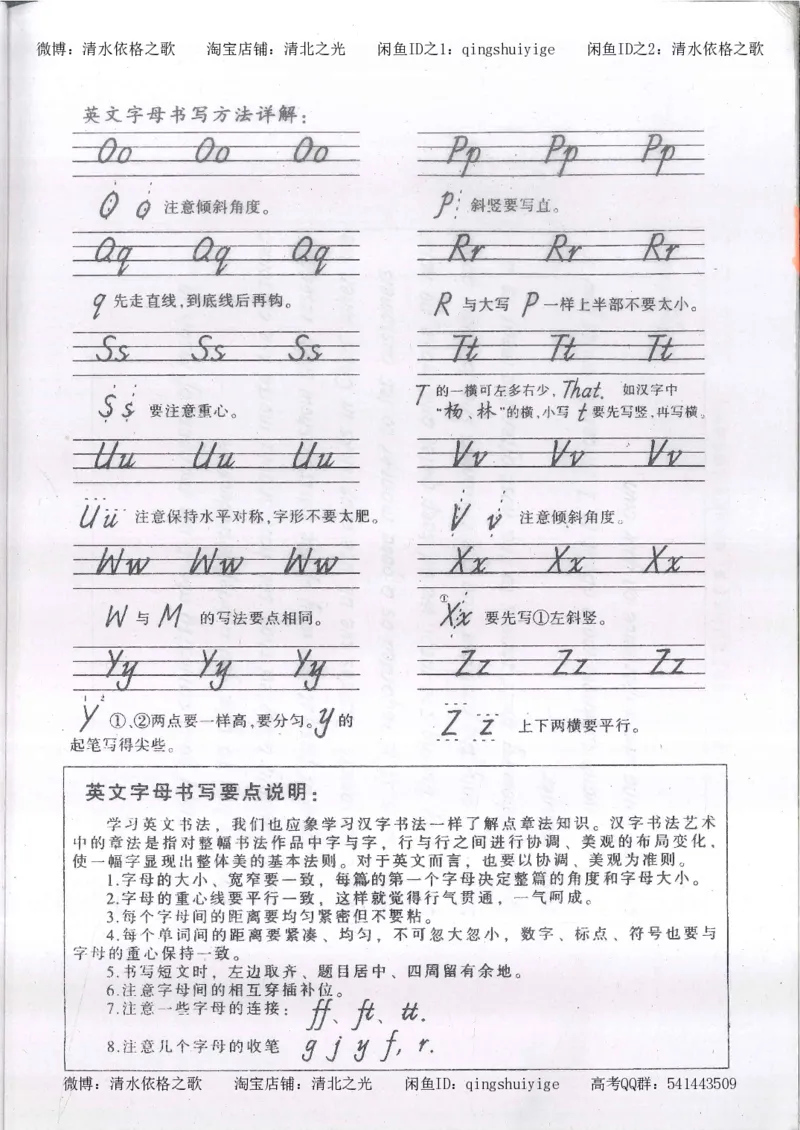 微博：清水依格之歌 淘宝店铺：清北之光 闲鱼ID之1：qingshuiyige 闲鱼ID之2：清水依格之歌
英文字母书写方法详解：
Oo Oo Oo Pp Pp Pp
O o 注意倾斜角度。 P 斜竖要写直。
Qq Qq Qq Rr Rr Rr
q 先走直线，到底线后再钩。 R 与大写 P 一样上半部不要太小。
Ss Ss Ss Tt Tt Tt
S s 要注意重心。 T 的一横可左多右少，That. 如汉字中
“杨、林”的横，小写 t 要先写竖，再写横。
Uu Uu Uu Vv Vv Vv
U u 注意保持水平对称，字形不要太肥。 V v 注意倾斜角度。
Ww Ww Ww Xx Xx Xx
W 与 M 的写法要点相同。 ① Xx 要先写①左斜竖。
Yy Yy Yy Zz Zz Zz
1 2
Y ①、②两点要一样高，要分匀。y 的 Z z 上下两横要平行。
起笔写得尖些。
英文字母书写要点说明：
学习英文书法，我们也应象学习汉字书法一样了解点章法知识。汉字书法艺术
中的章法是指对整幅书法作品中字与字，行与行之间进行协调、美观的布局变化，
使一幅字显现出整体美的基本法则。对于英文而言，也要以协调、美观为准则。
1.字母的大小、宽窄要一致，每篇的第一个字母决定整篇的角度和字母大小。
2.字母的重心线要平行一致，这样就觉得行气贯通，一气呵成。
3.每个字母间的距离要均匀紧密但不要粘。
4.每个单词间的距离要紧凑、均匀，不可忽大忽小，数字、标点、符号也要与
字母的重心保持一致。
5.书写短文时，左边取齐、题目居中、四周留有余地。
6.注意字母间的相互穿插补位。
7.注意一些字母的连接：ff、ft、tt.
8.注意几个字母的收笔 g j y f, r.
微博：清水依格之歌 淘宝店铺：清北之光 闲鱼ID：qingshuiyige 高考QQ群：541443509